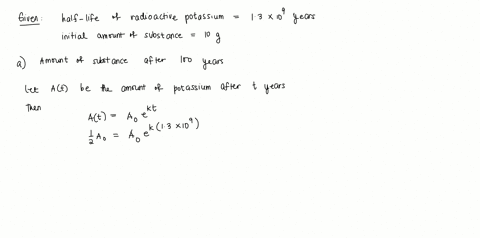 Given: half-life of radioactive potassium = 1.3 × 10⁹ years
initial amount of substance = 10 g
a) Amount of substance after 100 years
Let A(t) be the amount of potassium after t years
Then
A(t) = A₀ e^{kt}
½ A₀ = A₀ e^{k(1.3 × 10⁹)}